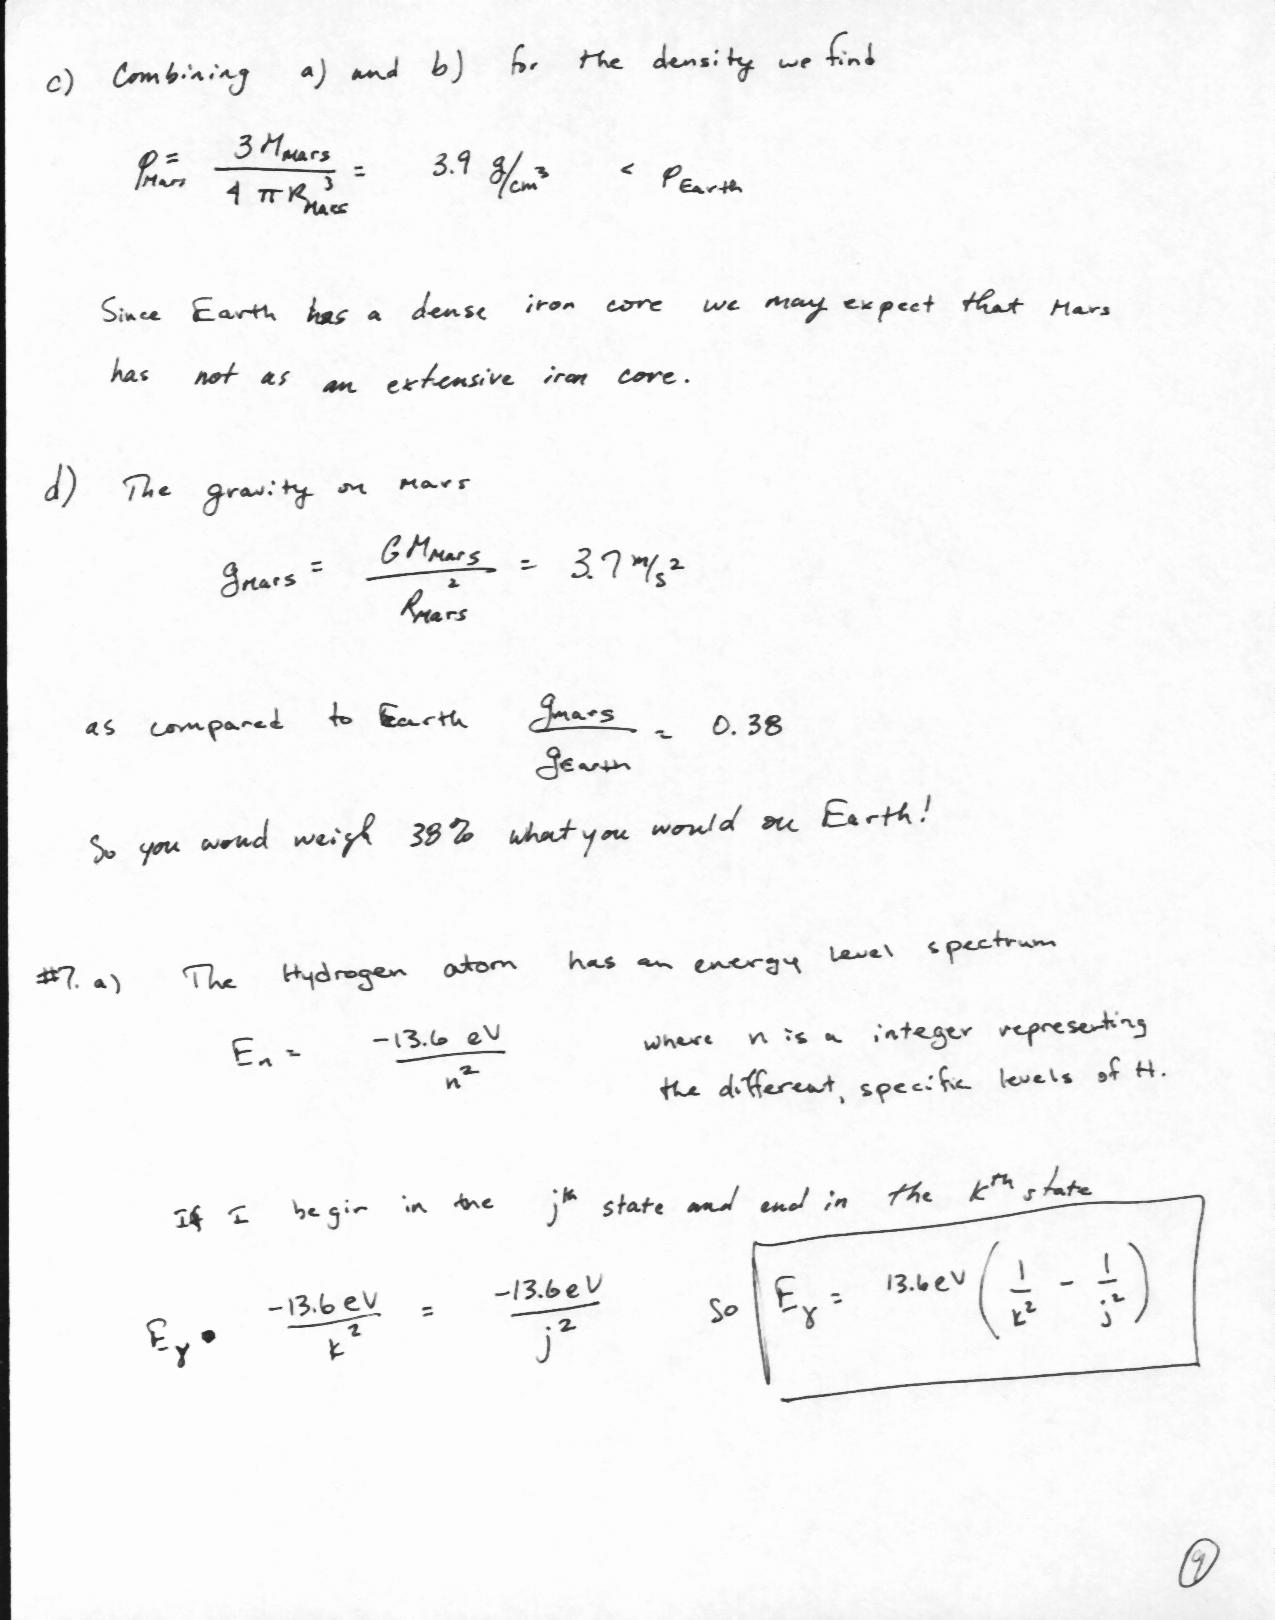 c) Combining a) and b) for the density we find
ρ_Mars = 3 M_Mars / 4 π R_Mars^3 = 3.9 g/cm^3 < ρ_Earth
Since Earth has a dense iron core we may expect that Mars
has not as an extensive iron core.
d) The gravity on Mars
g_Mars = G M_Mars / R_Mars^2 = 3.7 m/s^2
as compared to Earth g_Mars / g_Earth = 0.38
So you woud weigh 38% what you would on Earth!
#7. a) The Hydrogen atom has an energy level spectrum
E_n = -13.6 eV / n^2 where n is a integer representing
the different, specific levels of H.
If I begin in the j^th state and end in the k^th state
E_γ • -13.6 eV / k^2 = -13.6 eV / j^2 So E_γ = 13.6 eV (1/k^2 - 1/j^2)
9